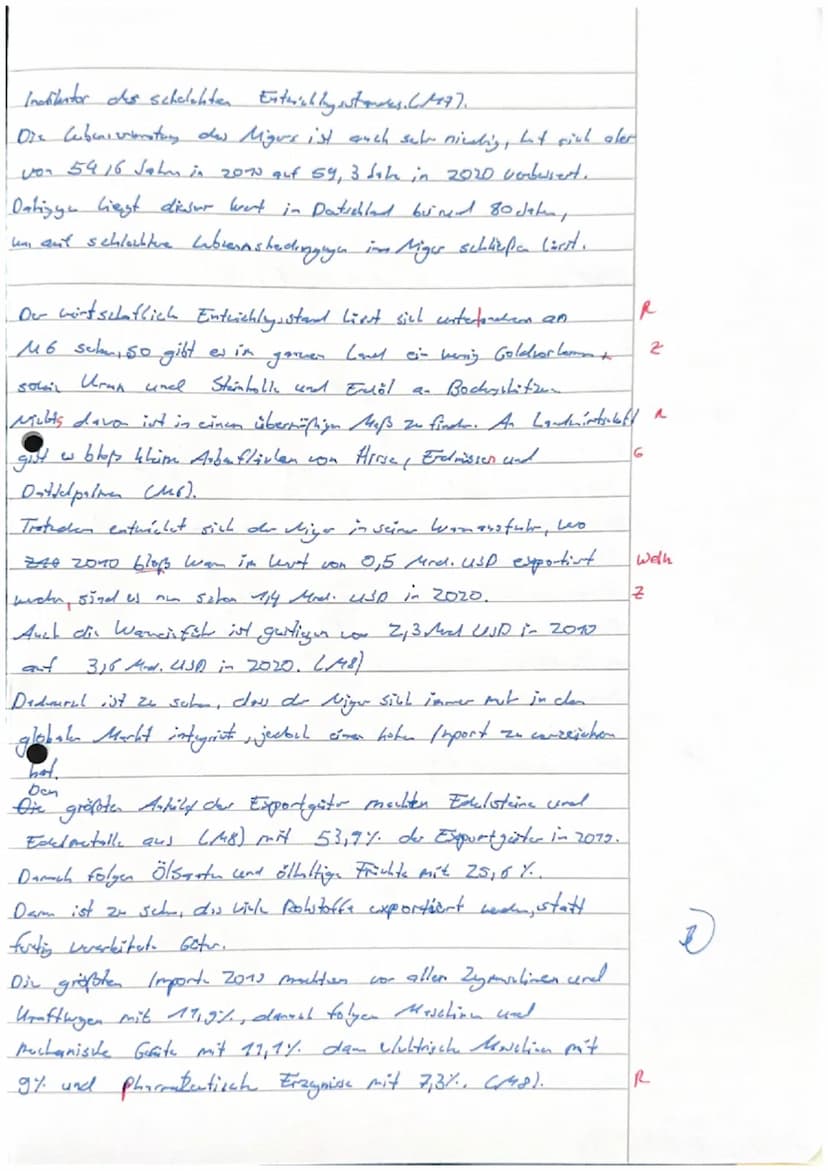 Indikator des schelchten Entwicklungsstandes. (M7).
Die Lebenserwartung des Nigers ist auch sehr niedrig, hat sich aber
von 54,6 Jahren in 2010 auf 59,3 Jahre in 2020 verbessert.
Dahingegen liegt dieser Wert in Deutschland bei rund 80 Jahren,
was auf schlechtere Lebensbedingungen im Niger schließen lässt.
Der wirtschaftlich Entwicklungsstand lässt sich an R
M6 sehen, so gibt es im ganzen Land ein wenig Goldvorkommen Z
sowie Uran und Steinkohle und Erdöl an Bodenschätzen.
Nichts davon ist in einem übermäßigen Maß zu finden. An Landwirtschaft R
gibt es bloß kleine Anbauflächen von Hirse, Erdnüssen und G
Dattelpalmen (M6).
Trotzdem entwickelt sich der Niger in seiner Warenausfuhr, wo
2010 bloß Waren im Wert von 0,5 Mrd. USD exportiert Wdh
wurden, sind es nun schon 1,4 Mrd. USD in 2020. Z
Auch die Wareneinfuhr ist gestiegen von 2,3 Mrd USD in 2010
auf 3,6 Mrd. USD in 2020. (M8)
Dadurch ist zu sehen, dass der Niger sich immer mehr in den
globalen Markt integriert, jedoch einen hohen Import zu verzeichnen
hat.
Den
Die größten Anteil der Exportgüter machten Edelsteine und
Edelmetalle aus (M8) mit 53,9% der Exportgüter in 2019.
Danach folgen Ölsaaten und ölhaltige Früchte mit 25,6%.
Daran ist zu sehen, das viele Rohstoffe exportiert werden, statt
fertig verarbeitete Güter.
Die größten Importe 2019 machten vor allem Zugmaschinen und
Kraftwagen mit 11,9%, danach folgen Maschinen und
mechanische Geräte mit 11,1% dann elektrische Maschinen mit
9% und pharmateutisch Erzeugnisse mit 7,3%. (M8). R